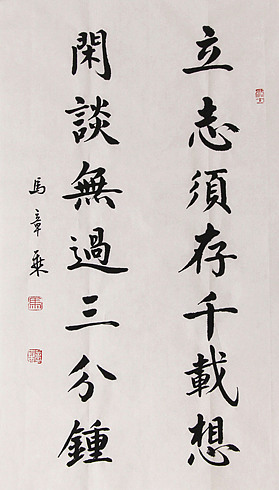 立志須存千載想
閑談無過三分鍾
馬章乗